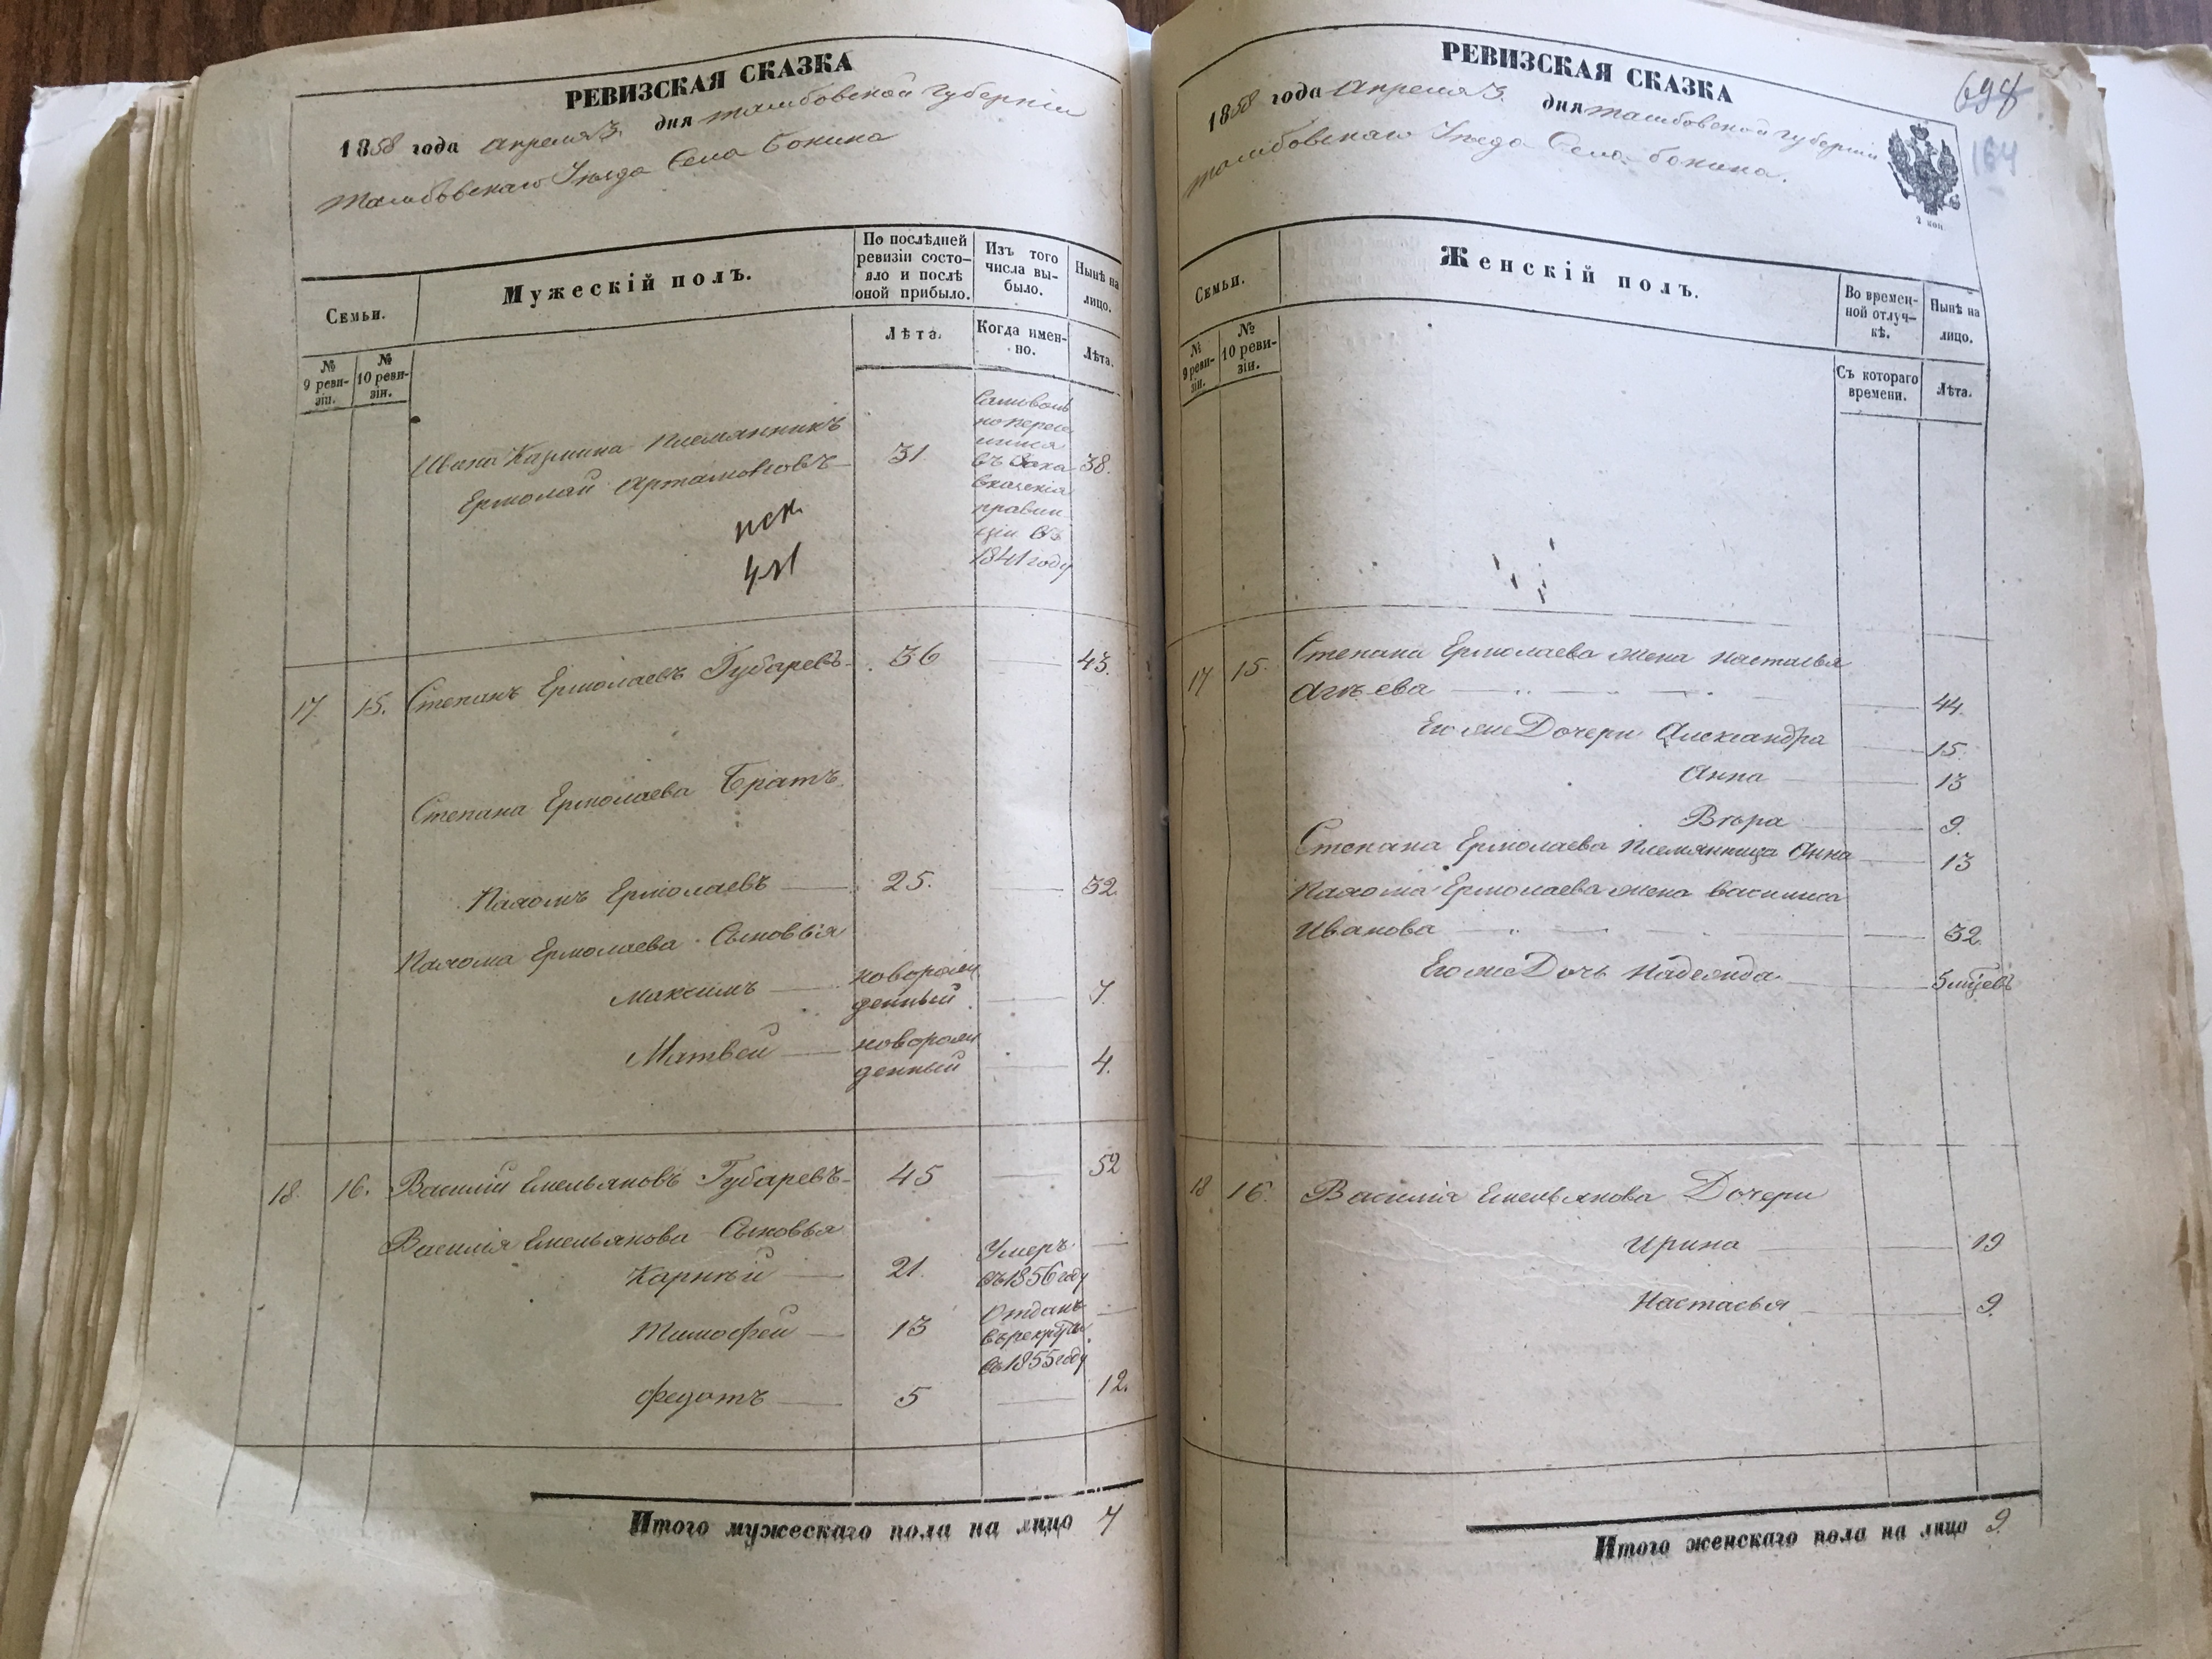 РЕВИЗСКАЯ СКАЗКА
1858 года Апреля 3. дня тамбовской губернiи
тамбовскаго Уезда Села Бокина
Семьи.
Мужескiй полъ.
По послѣдней ревизiи состо-
яло и послѣ
оной прибыло.
Изъ того
числа вы-
было.
Нынѣ на
лицо.
№
9 реви-
зiи.
№
10 реви-
зiи.
Лѣта.
Когда имен-
но.
Лѣта.
племянникъ
Ермолай Артамоновъ 31. 38.
1841 году
17. 15. Степанъ Ермолаевъ Губаревъ 36 43.
Степана Ермолаева Братъ
Пахомъ Ермолаевъ 25. 32
Пахома Ермолаева Сыновья
Максимъ новорож
денный 7.
Матвей новорож
денный 4.
18. 16. Василiй Емельяновъ Губаревъ 45 52
Василiя Емельянова Сыновья
Карнѣй 21. Умеръ
въ 1856 году
Тимофей 13 Отданъ
въ рекруты
въ 1855 году
Федотъ 5 12.
Итого мужескаго пола на лицо 7
РЕВИЗСКАЯ СКАЗКА
698
164
1858 года Апреля 3. дня тамбовской губернiи
тамбовскаго Уезда Села Бокина.
2 коп
Семьи.
Женскiй полъ.
Во времен-
ной отлуч-
кѣ.
Нынѣ на
лицо.
№
9 реви-
зiи.
№
10 реви-
зiи.
Съ котораго
времени.
Лѣта.
17 15. Степана Ермолаева жена Настасья
44.
Его же Дочери Александра 15.
Анна 13
Вѣра 9.
Степана Ермолаева Племянница Анна 13
Пахома Ермолаева жена Василиса
Иванова 32.
Его же Дочь Надежда 5 мцевъ
18 16. Василiя Емельянова Дочери
Ирина 19
Настасья 9.
Итого женскаго пола на лицо 9.